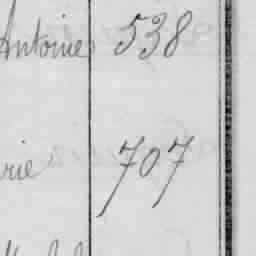 Antoine 538
rie 707